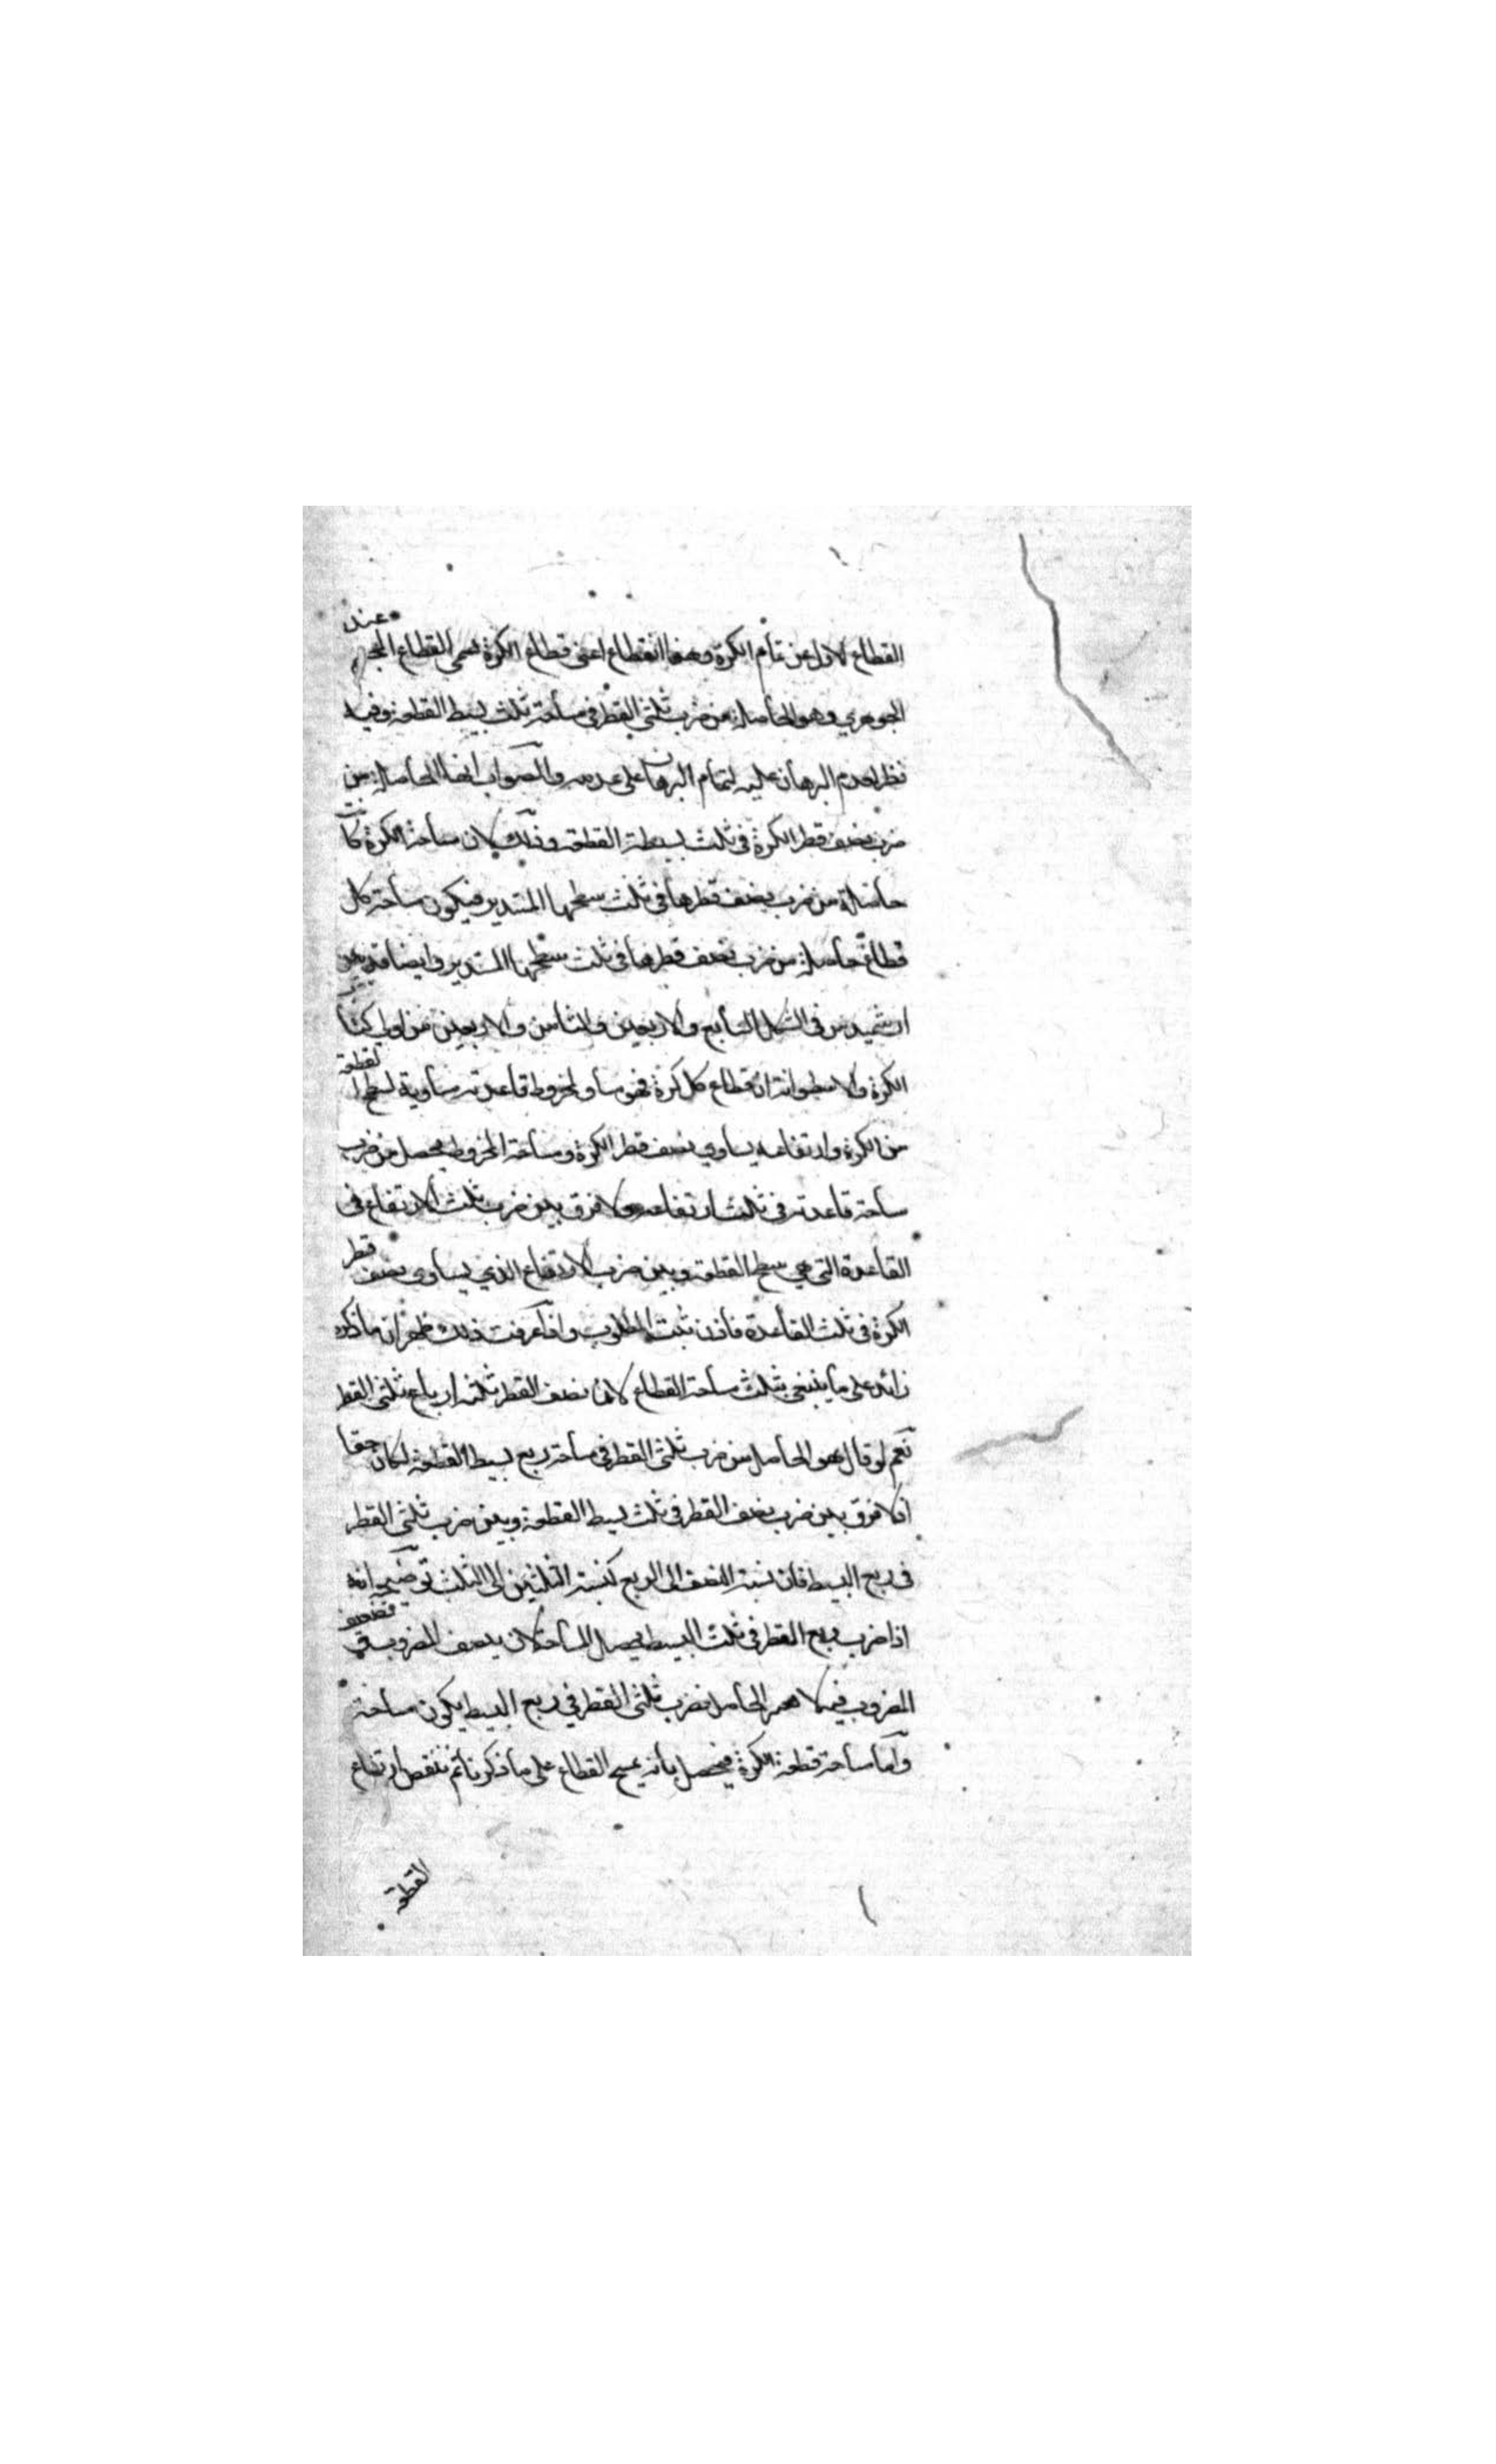 القطاع الاول عن تمام الكرة وهذا القطاع اعنى قطاع الكرة يسمى القطاع المجسم عند
الجوهري وهو الحاصل من ضرب ثلثى القطر فى مساحة ثلث بسيط القطعة وفيه
نظر لعدم البرهان عليه لتمام البرهان على عدمه والصواب انها الحاصلة من
ضرب نصف قطر الكرة فى ثلث بسيطة القطعة وذلك لان مساحة الكرة كانت
حاصلة من ضرب نصف قطرها فى ثلث سطحها المستدير فيكون مساحة كل
قطاع حاصلة من ضرب نصف قطرها فى ثلث سطحها المستدير وايضا قد بين
ارشميدس فى الشكل السابع والاربعين والثامن والاربعين من اولى كتاب
الكرة والاسطوانة ان قطاع كل كرة فهو مساو لمخروط قاعدته مساوية لسطح القطعة
من الكرة وارتفاعه يساوي نصف قطر الكرة ومساحة المخروط يحصل من ضرب
مساحة قاعدته فى ثلث ارتفاعه ولا فرق بين ضرب ثلث الارتفاع فى
القاعدة التى هي سطح القطعة وبين ضرب الارتفاع الذي يساوى نصف قطر
الكرة فى ثلث القاعدة فاذن ثبت المطلوب واذا عرفت ذلك ظهر ان ما ذكره
زائد على ما ينبغى بثلث مساحة القطاع لان نصف القطر ثلثة ارباع ثلثى القطر
نعم لو قال هو الحاصل من ضرب ثلثى القطر فى مساحة ربع بسيط القطعة لكان حقا
اذ لا فرق بين ضرب نصف القطر فى ثلث بسيط القطعة وبين ضرب ثلثى القطر
فى ربع البسيط فان نسبة النصف الى الربع كنسبة الثلثين الى الثلث توضيحه انه
اذا ضرب ربع القطر فى ثلث البسيط يحصل المساحة لان بنصف المضروب وتضعيف
المضروب فيه لا الحاصل فضرب ثلثى القطر في ربع البسيط يكون مساحة
واما مساحة قطعة الكرة فيحصل بانه يمسح القطاع على ما ذكرنا ثم ننقص ارتفاع
القطعة